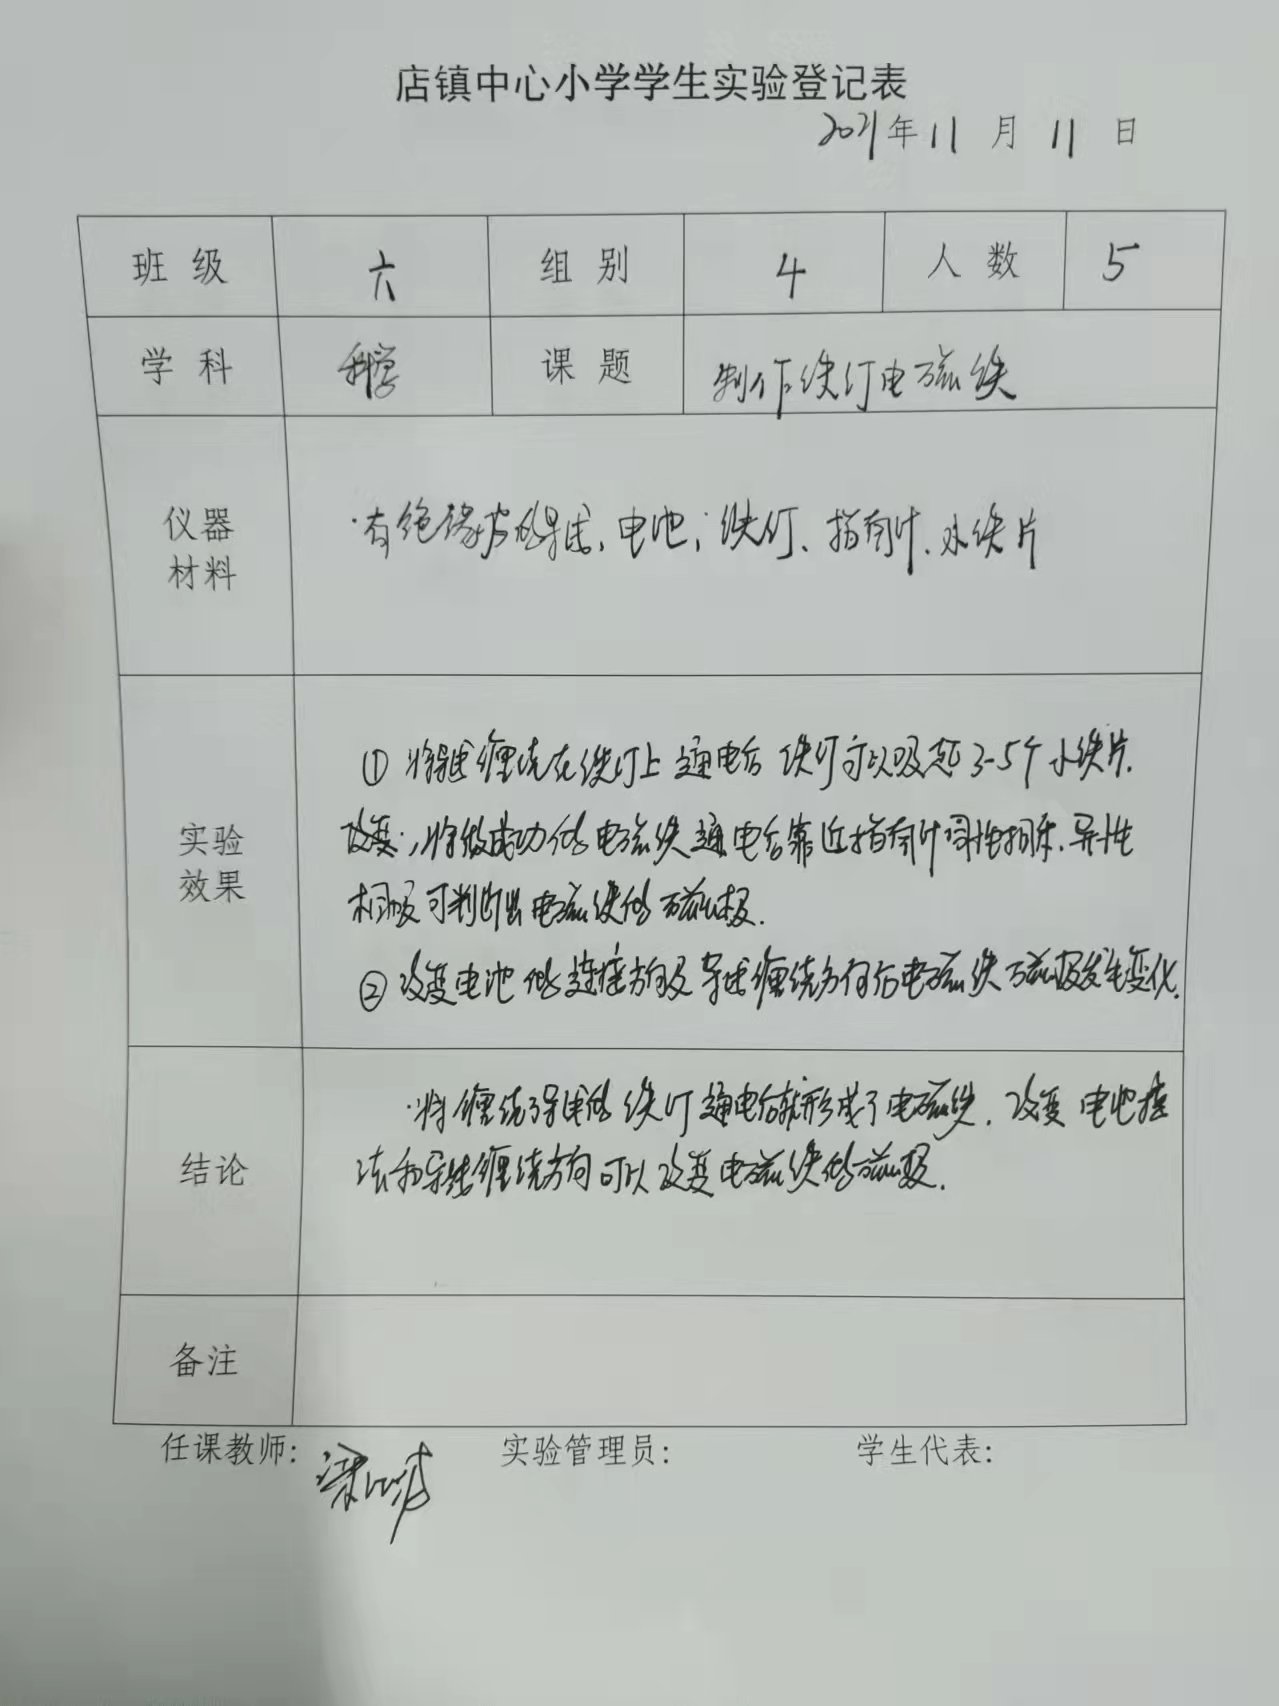 店镇中心小学学生实验登记表
2021年11月11日
班级 六 组别 4 人数 5
学科 科学 课题 制作铁钉电磁铁
仪器
材料
有绝缘皮的导线、电池、铁钉、指南针、小铁片
实验
效果
① 将导线缠绕在铁钉上 通电后 铁钉可以吸起3-5个小铁片.
改变,将做成功的电磁铁通电后靠近指南针同性相斥.异性
相吸可判断出电磁铁的磁极.
② 改变电池的连接方向及导线缠绕方向后电磁铁磁极发生变化.
结论
将缠绕导线的铁钉通电后就形成了电磁铁.改变电池接
法和导线缠绕方向可以改变电磁铁的磁极.
备注
任课教师: 实验管理员: 学生代表: